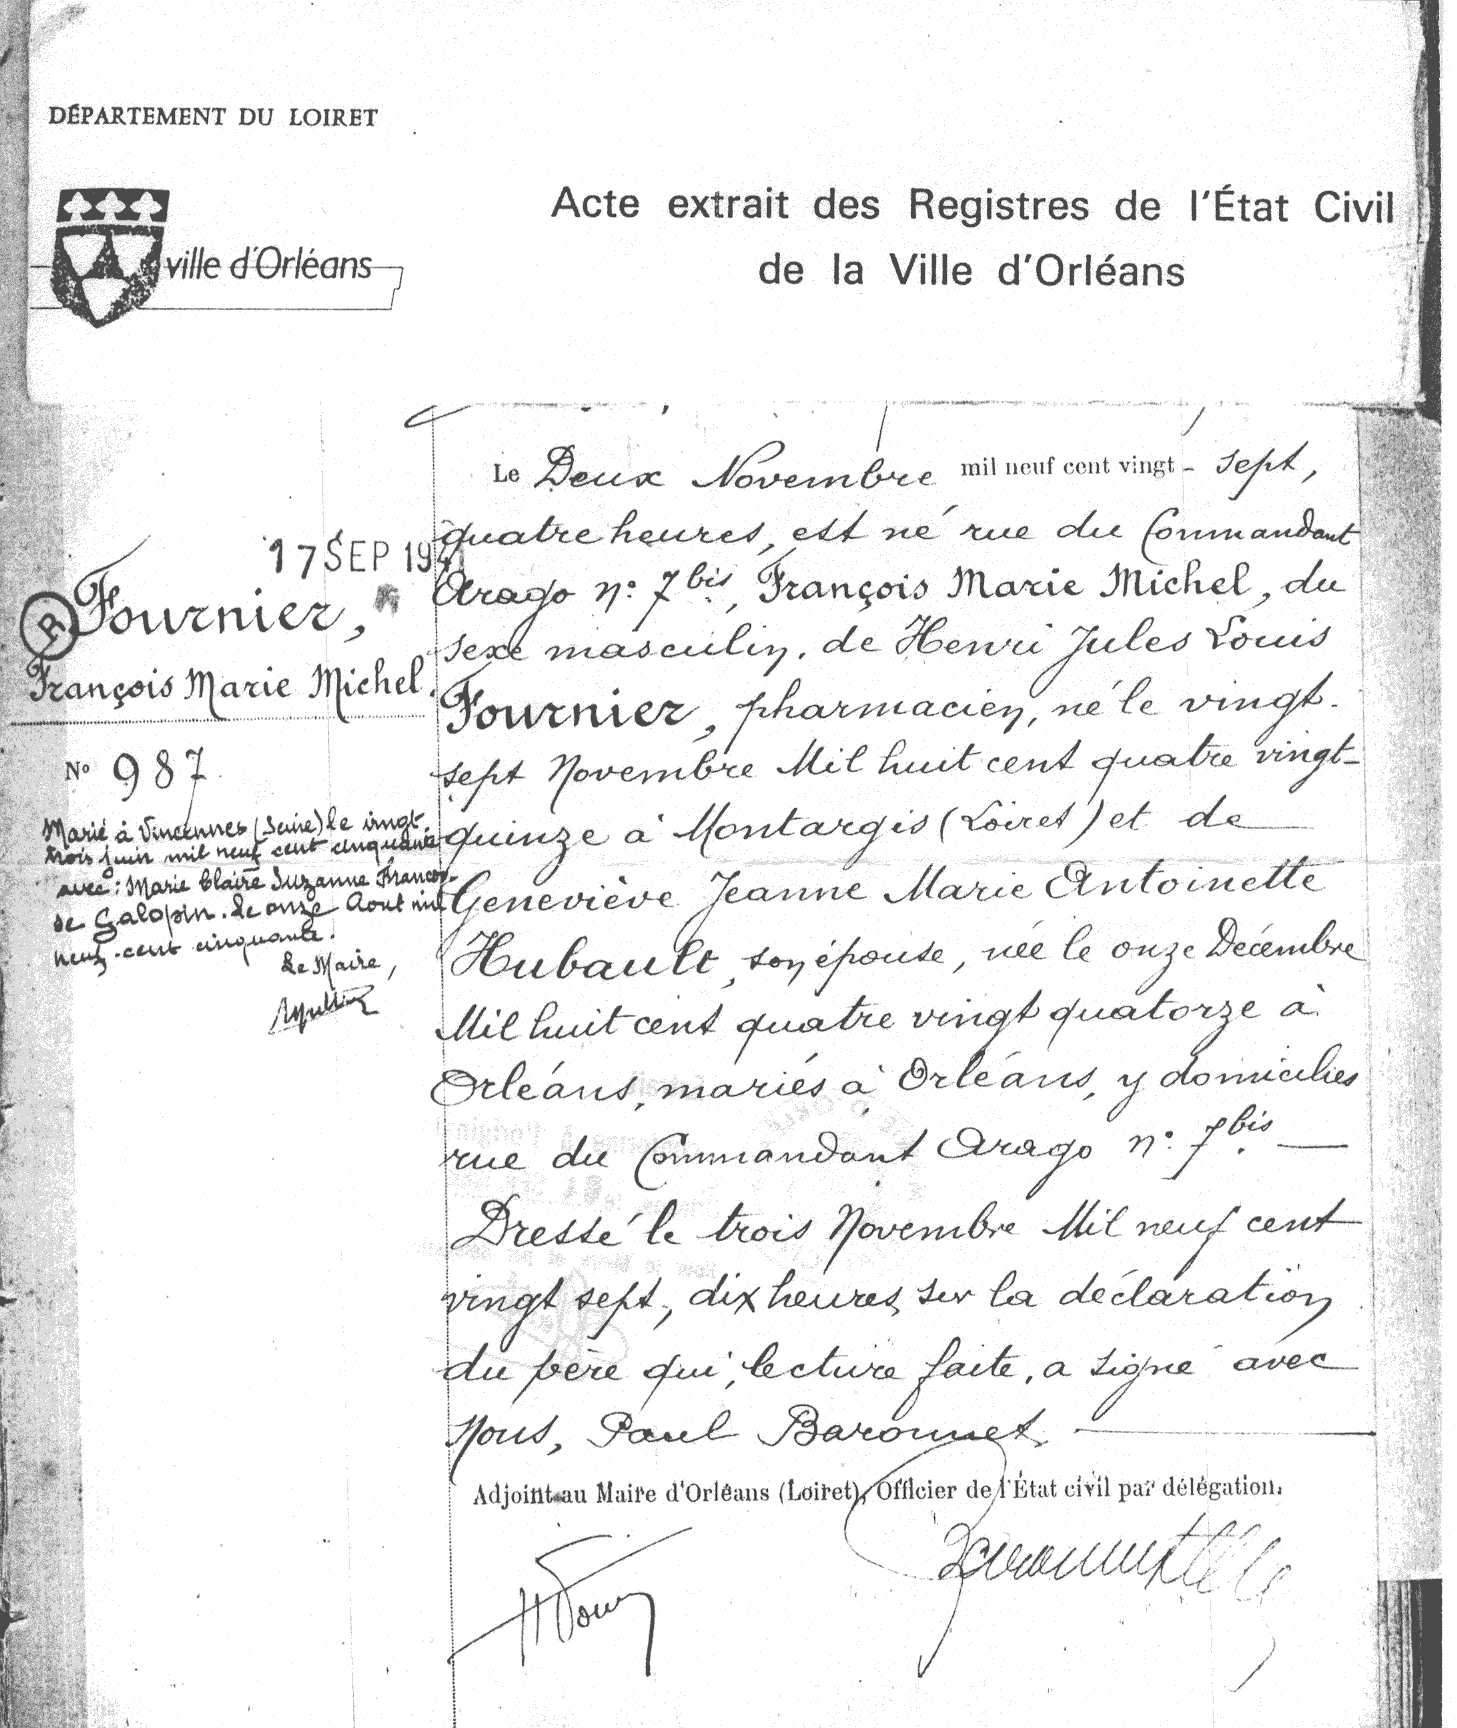 DÉPARTEMENT DU LOIRET
ville d'Orléans
Acte extrait des Registres de l'État Civil
de la Ville d'Orléans
17 SEP 19
R
Fournier,
François Marie Michel.
No 987
Marié à Vincennes (Seine) le vingt
trois juin mil neuf cent cinquante
avec : Marie Claire Suzanne Françoi-
se Galopin. Le onze Aout mil
neuf-cent cinquante.
Le Maire,
Le Deux Novembre mil neuf cent vingt-sept,
quatre heures, est né rue du Commandant
Arago n: 7 bis, François Marie Michel, du
sexe masculin, de Henri Jules Louis
Fournier, pharmacien, né le vingt-
sept Novembre Mil huit cent quatre vingt-
quinze à Montargis (Loiret) et de
Geneviève Jeanne Marie Antoinette
Hubault, son épouse, née le onze Décembre
Mil huit cent quatre vingt quatorze à
Orléans, mariés à Orléans, y domiciliés
rue du Commandant Arago n: 7 bis.
Dressé le trois Novembre Mil neuf cent
vingt sept, dix heures, sur la déclaration
du père qui, lecture faite, a signé avec
Nous, Paul Baronnet.
Adjoint au Maire d'Orléans (Loiret), Officier de l'État civil par délégation.